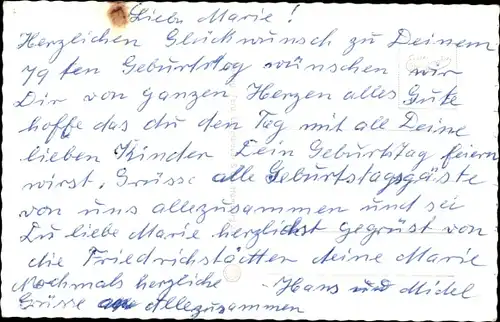 Liebe Marie!
Herzlichen Glückwunsch zu Deinem
79 ten Geburtstag wünschen wir
Dir von ganzen Herzen alles Gute
hoffe das du den Tag mit all Deine
lieben Kinder Dein Geburtstag feiern
wirst. Grüsse alle Geburtstagsgäste
von uns allezusammen und sei
Du liebe Marie herzlichst gegrüst von
die Friedrichstätter deine Marie
Nochmals herzliche - Hans und Midel
Grüsse an Allezusammen